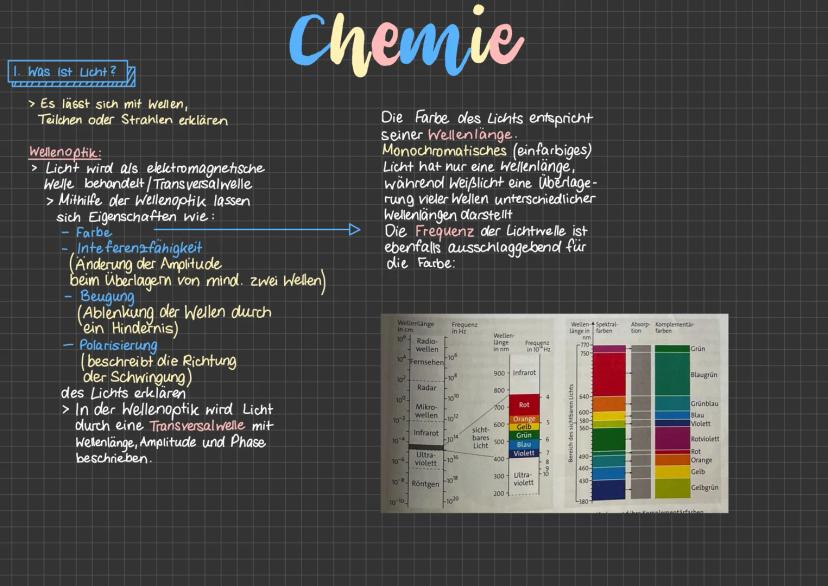 Chemie
1. Was ist Licht?
> Es lässt sich mit Wellen,
Teilchen oder Strahlen erklären
Wellenoptik:
> Licht wird als elektromagnetische
Welle behandelt/Transversalwelle
> Mithilfe der Wellenoptik lassen
sich Eigenschaften wie:
- Farbe
- Inteferenzfähigkeit
(Änderung der Amplitude
beim Überlagern von mind. zwei Wellen)
- Beugung
(Ablenkung der Wellen durch
ein Hindernis)
- Polarisierung
(beschreibt die Richtung
der Schwingung)
des Lichts erklären
> In der Wellenoptik wird Licht
durch eine Transversalwelle mit
Wellenlänge, Amplitude und Phase
beschrieben.
Die Farbe des Lichts entspricht
seiner Wellenlänge.
Monochromatisches (einfarbiges)
Licht hat nur eine Wellenlänge,
während Weißlicht eine Überlage-
rung vieler Wellen unterschiedlicher
Wellenlängen darstellt
Die Frequenz der Lichtwelle ist
ebenfalls ausschlaggebend für
die Farbe:
Wellenlänge
in cm
Frequenz
in Hz
Radio-
wellen
Fernsehen
Radar
Mikro-
wellen
Infrarot
Ultra-
violett
Röntgen
sicht-
bares
Licht
Wellen-
länge
in nm
Frequenz
900
800
700
600
500
400
300
200
Infrarot
Rot
Orange
Gelb
Grün
Blau
Violett
Ultra-
violett
4
5
6
7
8
9
Wellen-
länge in
nm
Spektral-
farben
Absorp-
tion
Komplementär-
farben
Bereich des sichtbaren Lichts
770
750
640
600
580
560
490
460
430
380
Grün
Blaugrün
Grünblau
Blau
Violett
Rotviolett
Rot
Orange
Gelb
Gelbgrün